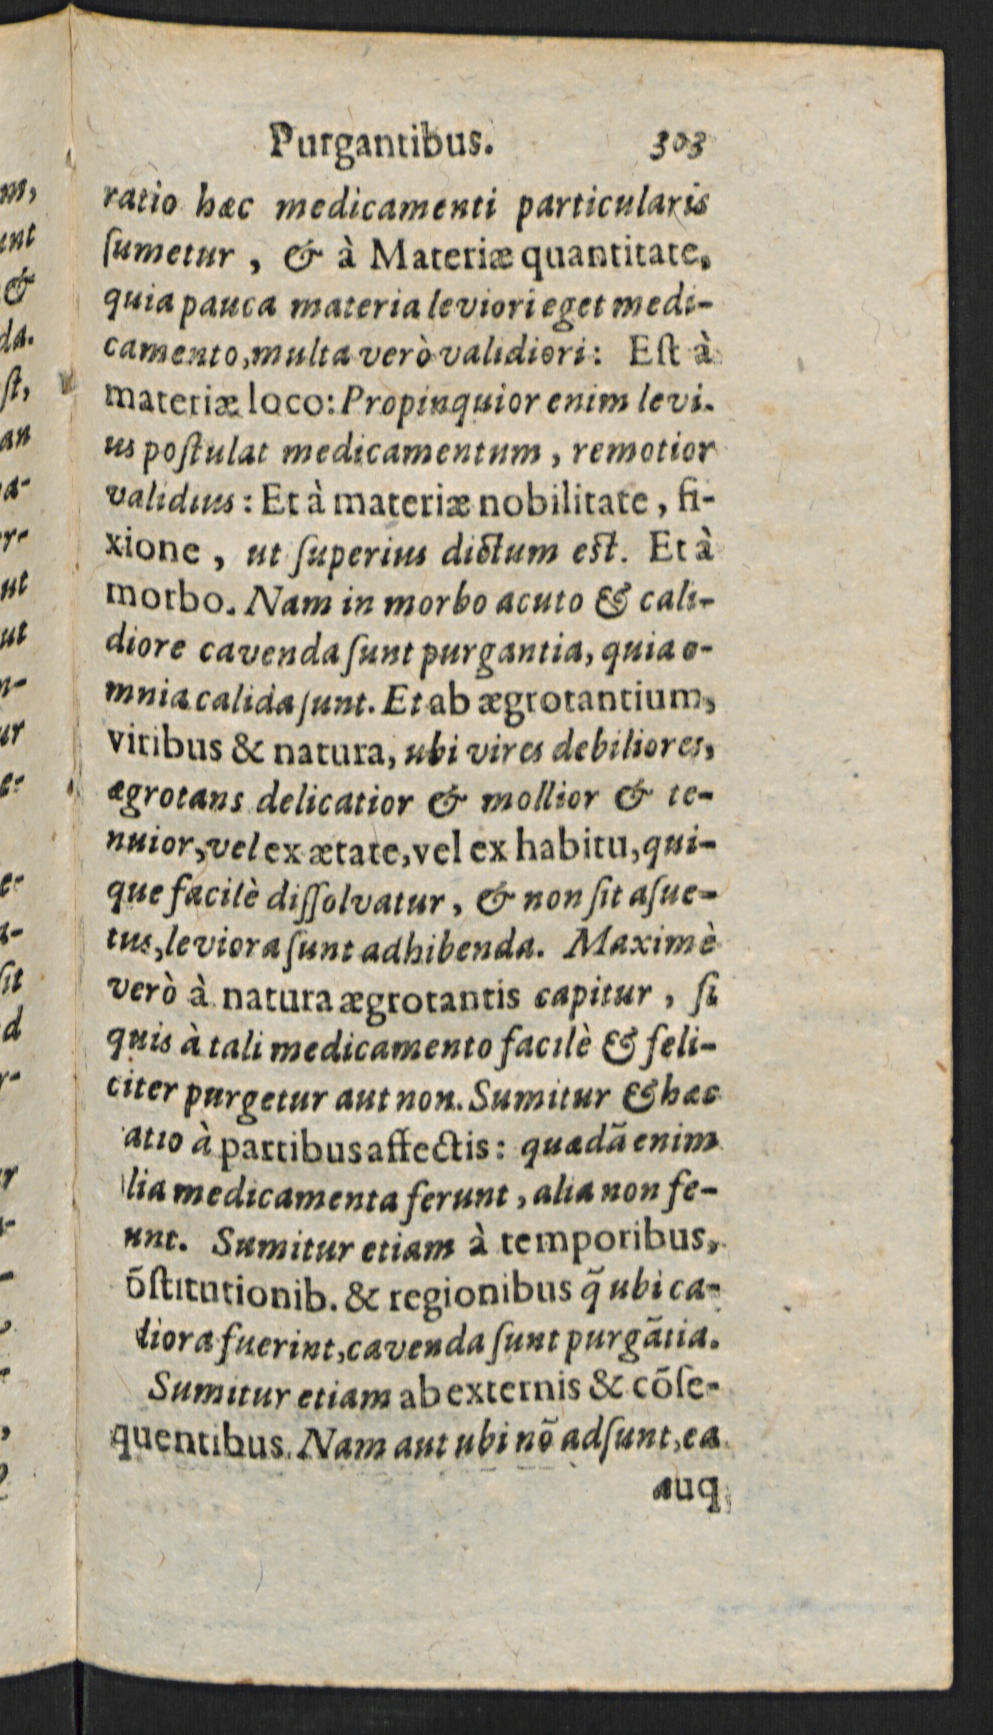 Purgantibus. 303
ratio hæc medicamenti particularis
ſumetur, & à Materiæ quantitate,
quia pauca materia leviori eget medi-
camento, multa verò validiori: Eſt à
materiæ loco: Propinquior enim levi-
us poſtulat medicamentum, remotior
validius: Et à materiæ nobilitate, fi-
xione, ut ſuperius dictum eſt. Et à
morbo. Nam in morbo acuto & cali-
diore cavenda ſunt purgantia, quia o-
mnia calida ſunt. Et ab ægrotantium,
viribus & natura, ubi vires debiliores,
ægrotans delicatior & mollior & te-
nuior, vel ex ætate, vel ex habitu, qui-
que facilè diſſolvatur, & non ſit aſue-
tus, leviora ſunt adhibenda. Maximè
verò à natura ægrotantis capitur, ſi
quis à tali medicamento facilè & feli-
citer purgetur aut non. Sumitur & hæc
atio à partibus affectis: quædā enim
lia medicamenta ferunt, alia non fe-
unt. Sumitur etiam à temporibus,
ōſtitutionib. & regionibus q̃ ubi ca-
liora fuerint, cavenda ſunt purgātia.
Sumitur etiam ab externis & cōſe-
quentibus. Nam aut ubi nō adſunt, ea
auq